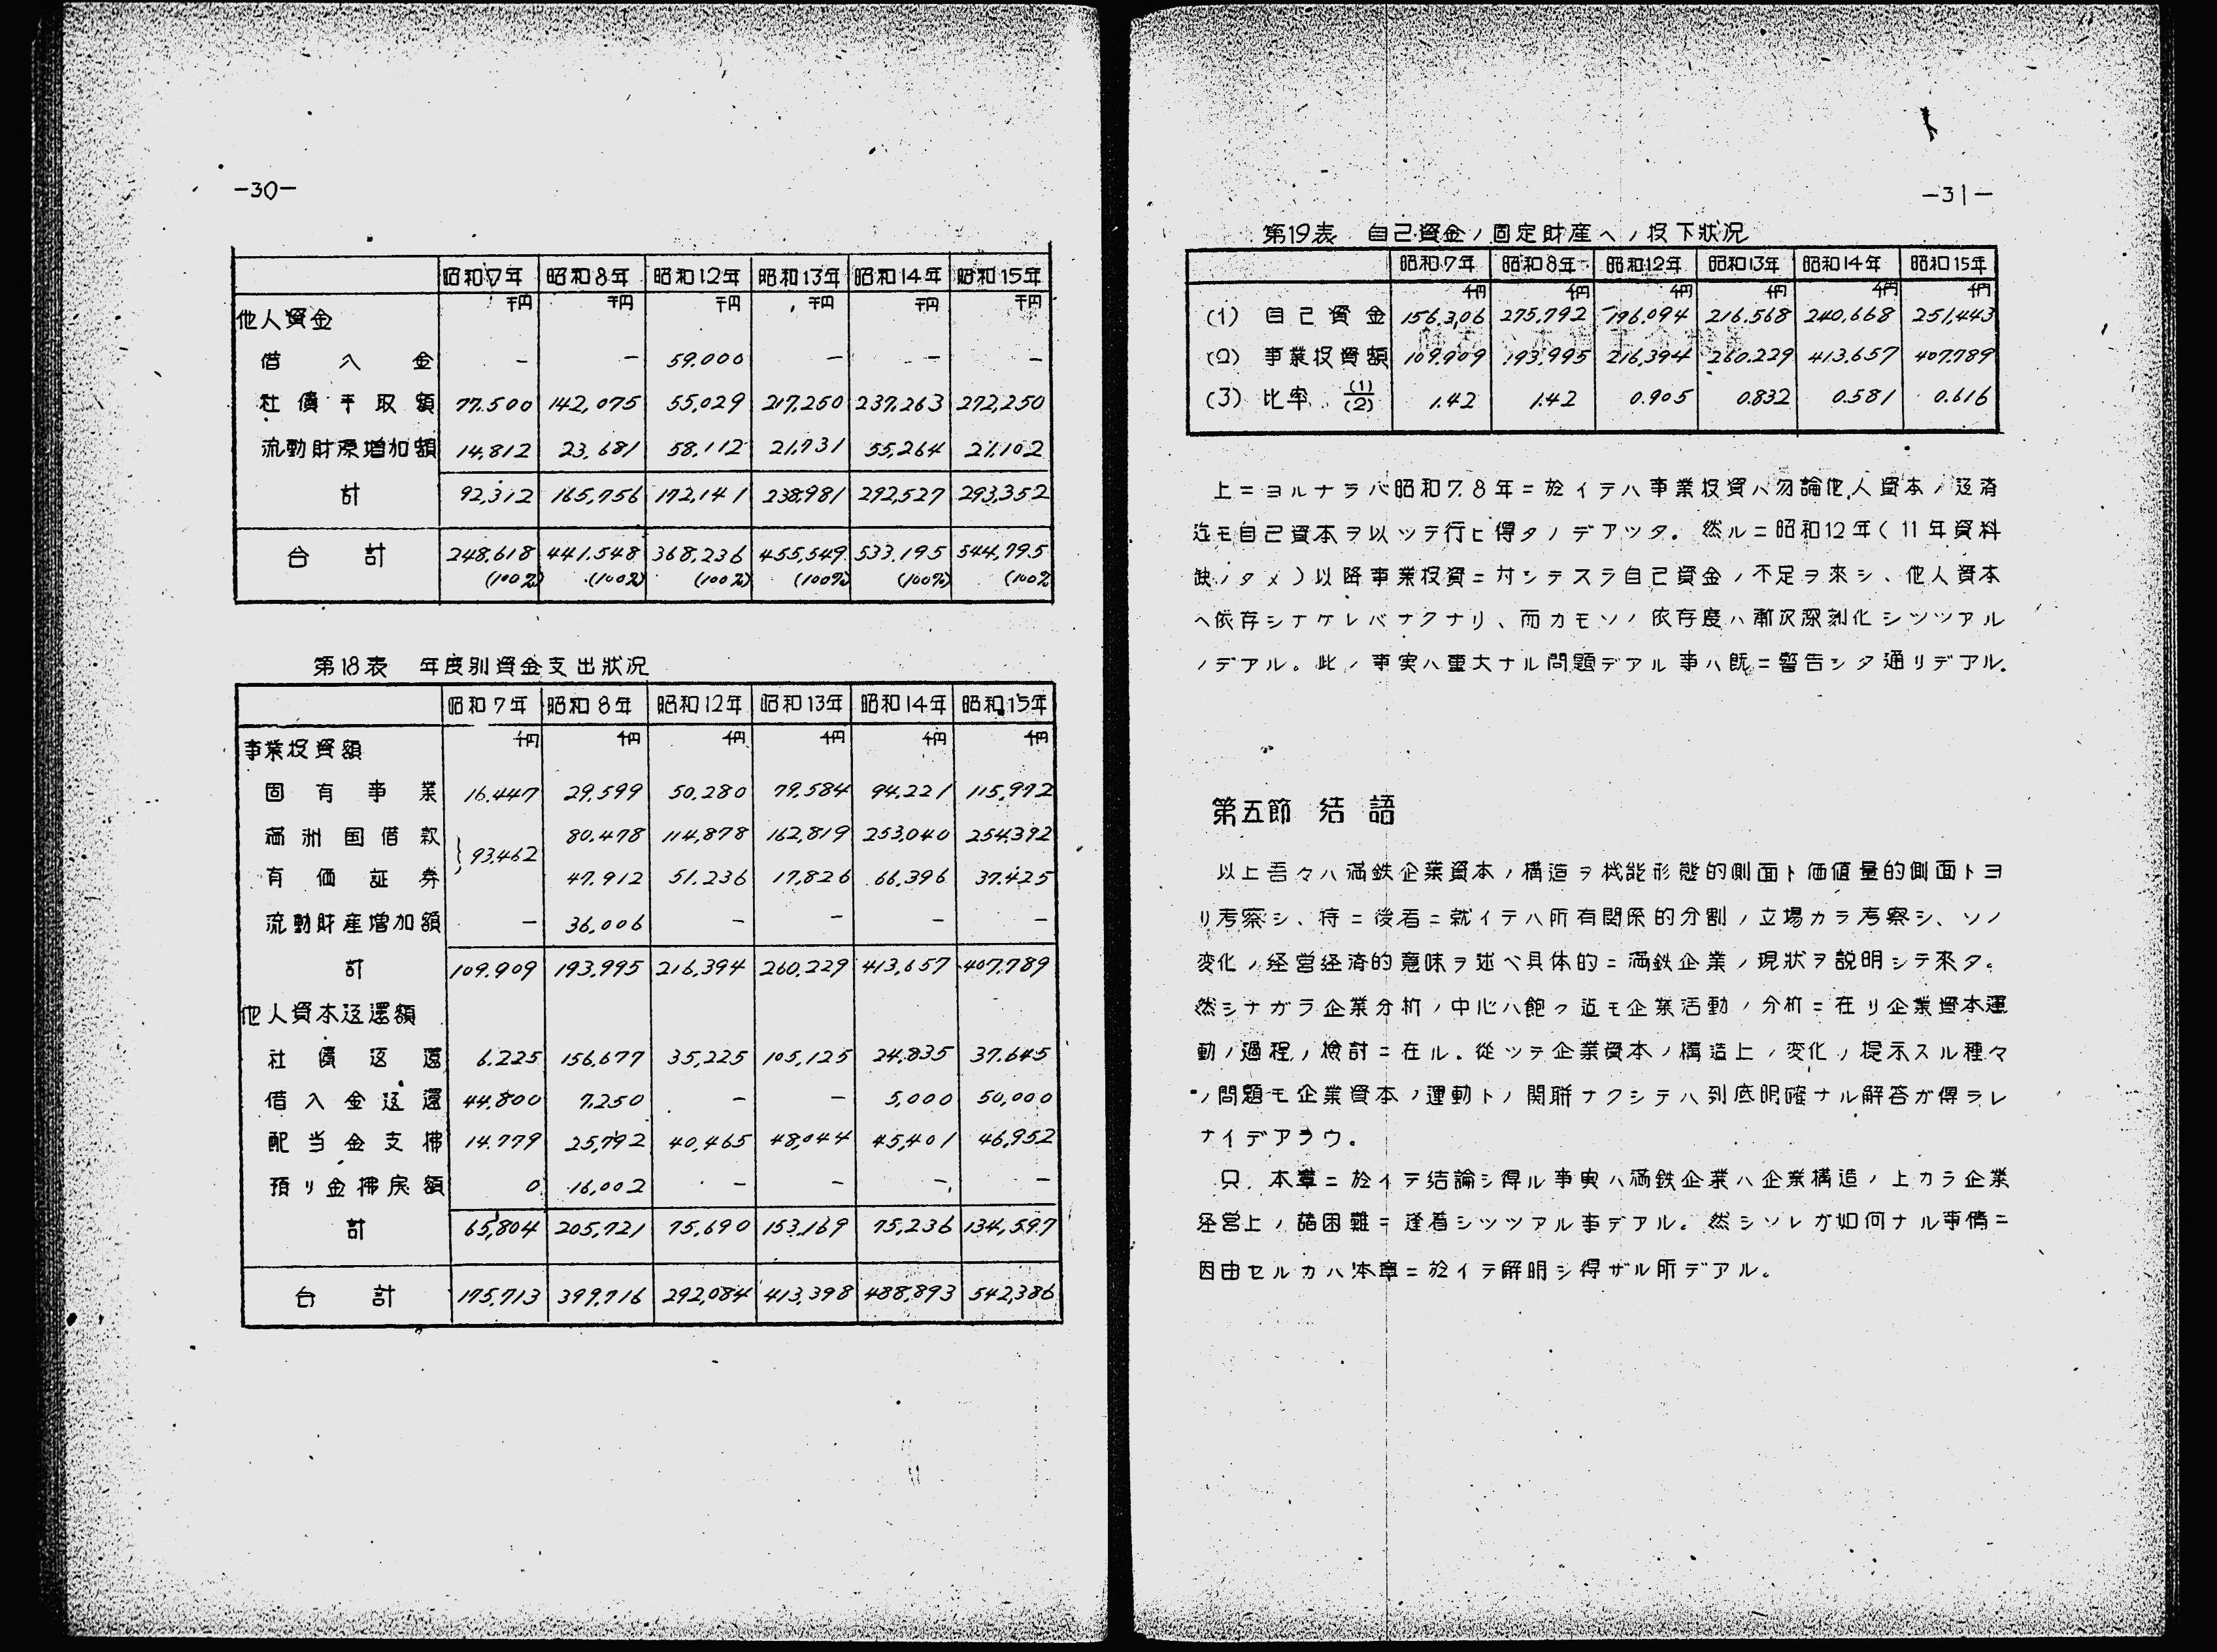 -30-
昭和7年 昭和8年 昭和12年 昭和13年 昭和14年 昭和15年
千円 千円 千円 千円 千円 千円
他人資金
借入金 - - 59.000 - - -
社債手取額 77.500 142,075 55,029 217,250 237.263 272,250
流動財源増加額 14,812 23,681 58,112 21,731 55,264 21,102
計 92,312 165,756 172,141 238,981 292,527 293,352
合計 248,618 441,548 368,236 455,549 533,195 544,795
(100%) (100%) (100%) (100%) (100%) (100%
第18表 年度別資金支出狀况
昭和7年 昭和8年 昭和12年 昭和13年 昭和14年 昭和15年
千円 千円 千円 千円 千円 千円
事業投資額
固有事業 16,447 29,599 50,280 79,584 94,221 115,972
満洲国借款 80,478 114,878 162,819 253,040 254,392
} 93,462
有価証券 47,912 51,236 17,826 66,396 37,425
流動財産増加額 - 36,006 - - - -
計 109,909 193,995 216,394 260,229 413,657 407,789
他人資本返還額
社債返還 6,225 156,677 35,225 105,125 24,835 37,645
借入金返還 44,800 7,250 - - 5,000 50,000
配当金支拂 14,779 25,792 40,465 48,044 45,401 46,952
預リ金拂戻額 0 16,002 - - - -
計 65,804 205,721 75,690 153,169 75,236 134,597
合計 175,713 399,716 292,084 413,398 488,893 542,386
-31-
第19表 自己資金ノ固定財産ヘノ投下狀况
昭和7年 昭和8年 昭和12年 昭和13年 昭和14年 昭和15年
千円 千円 千円 千円 千円 千円
(1) 自己資金 156,306 275,792 196,094 216,568 240,668 251,443
(2) 事業投資額 109,909 193,995 216,394 260,229 413,657 407,789
(3) 比率 (1)/(2) 1.42 1.42 0.905 0.832 0.581 0.616
上ニヨルナラバ昭和7.8年ニ於イテハ事業投資ハ勿論他人資本ノ返済
迄モ自己資本ヲ以ツテ行ヒ得タノデアツタ。然ルニ昭和12年(11年資料
缺ノタメ)以降事業投資ニ対シテスラ自己資金ノ不足ヲ來シ、他人資本
ヘ依存シナケレバナクナリ、而カモソノ依存度ハ漸次深刻化シツツアル
ノデアル。此ノ事実ハ重大ナル問題デアル事ハ既ニ警告シタ通リデアル。
第五節 結語
以上吾々ハ満鉄企業資本ノ構造ヲ機能形態的側面ト価値量的側面トヨ
リ考察シ、特ニ後者ニ就イテハ所有関係的分割ノ立場カラ考察シ、ソノ
変化ノ経営経済的意味ヲ述ベ具体的ニ満鉄企業ノ現状ヲ説明シテ來タ。
然シナガラ企業分析ノ中心ハ飽ク迄モ企業活動ノ分析ニ在リ企業資本運
動ノ過程ノ検討ニ在ル。従ツテ企業資本ノ構造上ノ変化ノ提示スル種々
ノ問題モ企業資本ノ運動トノ関聯ナクシテハ到底明確ナル解答ガ得ラレ
ナイデアラウ。
只、本章ニ於イテ結論シ得ル事実ハ満鉄企業ハ企業構造ノ上カラ企業
経営上ノ諸困難ニ逢着シツツアル事デアル。然シソレガ如何ナル事情ニ
因由セルカハ本章ニ於イテ解明シ得ザル所デアル。